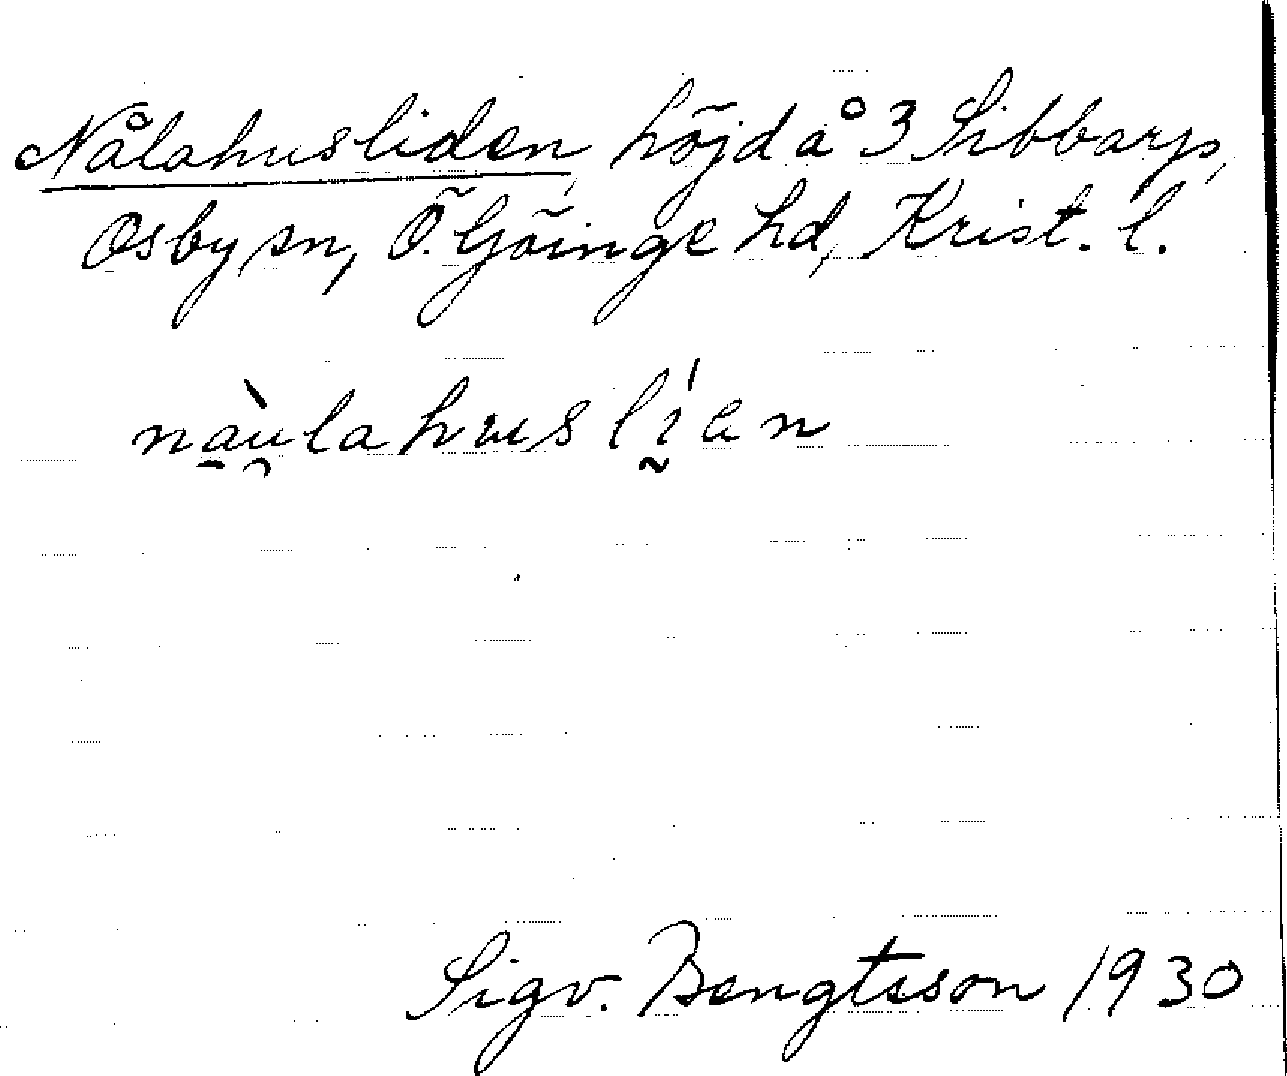 Nålahusliden, höjd å 3 Sibbarp,
Osby sn, Ö. Göinge hd, Krist. l.
na̠ù̯lahuslḭ́en
Sigv. Bengtsson 1930